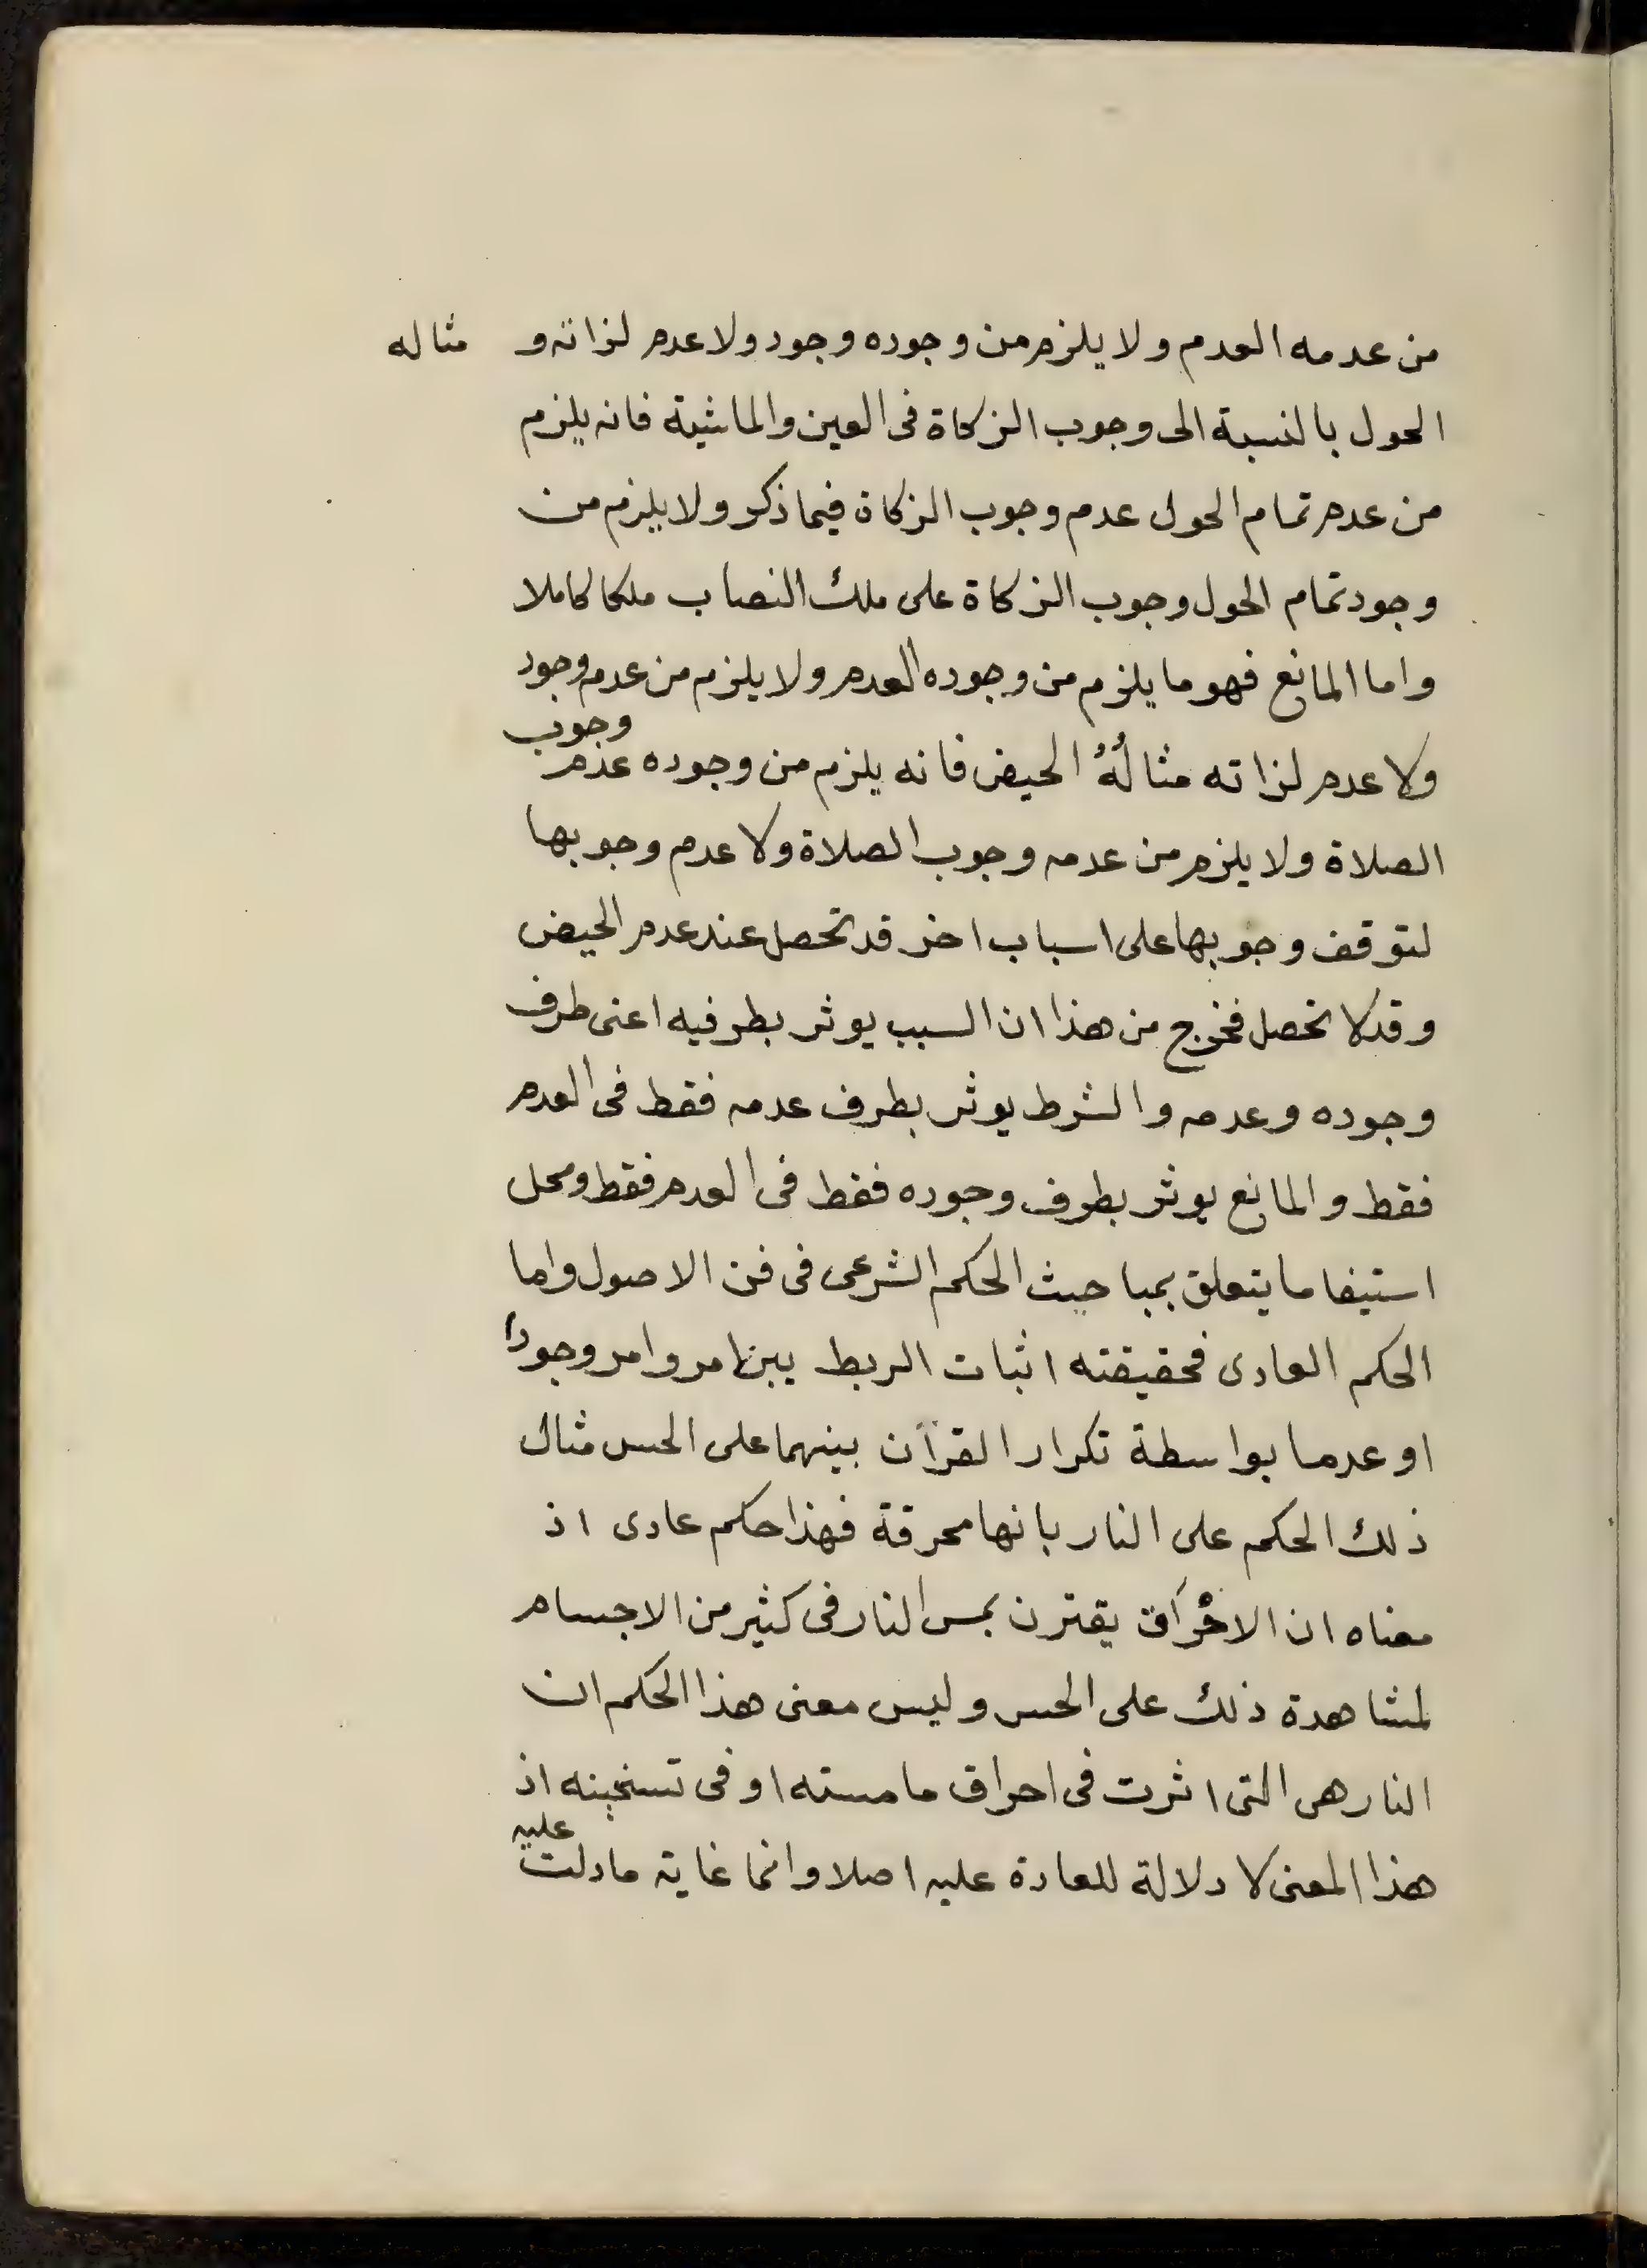 من عدمه العدم ولا يلزم من وجوده وجود ولا عدم لذاته و مثاله
الحول بالنسبة الى وجوب الزكاة فى العين والماشية فانه يلزم
من عدم تمام الحول عدم وجوب الزكاة فيما ذكر ولا يلزم من
وجود تمام الحول وجوب الزكاة على ملك النصاب ملكا كاملا
واما المانع فهو ما يلزم من وجوده العدم ولا يلزم من عدم وجود
ولا عدم لذاته مثالُهُ الحيض فانه يلزم من وجوده عدم وجوب
الصلاة ولا يلزم من عدمه وجوب الصلاة ولا عدم وجوبها
لتوقف وجوبها على اسباب اخر قد تحصل عند عدم الحيض
وقد لا تحصل فخرج من هذا ان السبب يوثر بطرفيه اعنى طرف
وجوده وعدمه والشرط يوثر بطرف عدمه فقط فى العدم
فقط والمانع يوثر بطرف وجوده فقط فى العدم فقط ومحل
استيفا ما يتعلق بمباحث الحكم الشرعى فى فن الاصول واما
الحكم العادى فحقيقته اثبات الربط بين امر وامر وجودا
او عدما بواسطة تكرار القرآن بينهما على الحس مثال
ذلك الحكم على النار بانها محرقة فهذا حكم عادى اذ
معناه ان الاحْرَاق يقترن بمس النار فى كثير من الاجسام
لمشاهدة ذلك على الحس وليس معنى هذا الحكم ان
النار هى التى اثرت فى احراق ما مسته او فى تسخينه اذ
هذا المعنى لا دلالة للعادة عليه اصلا وانما غاية ما دلت عليه